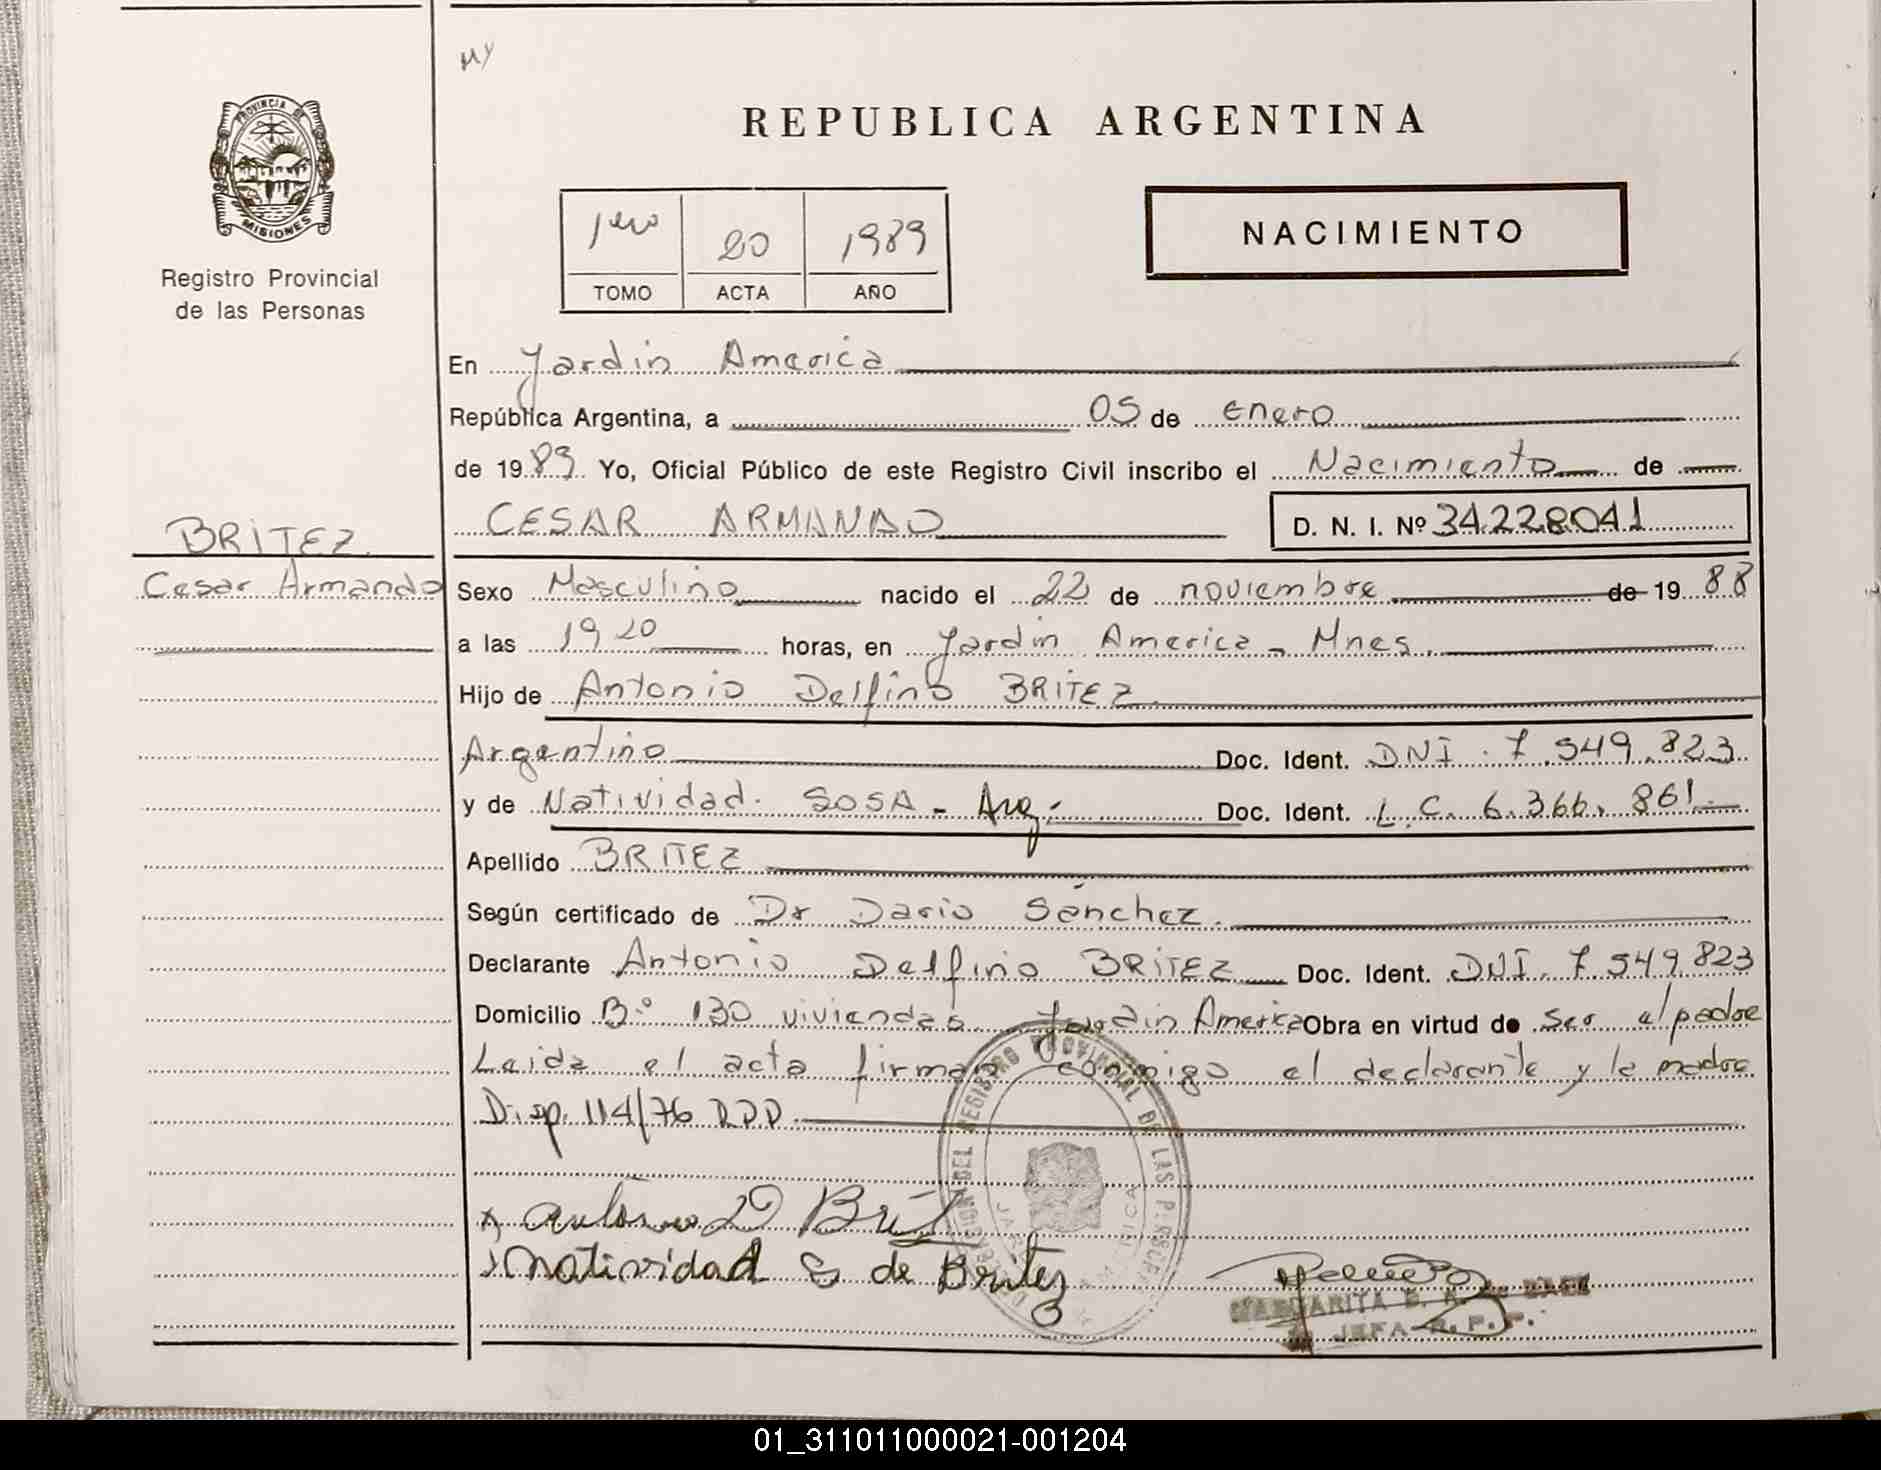 MY
PROVINCIA DE
MISIONES
Registro Provincial
de las Personas
REPUBLICA ARGENTINA
1ero 20 1989
TOMO ACTA AÑO
NACIMIENTO
En Jardin America
República Argentina, a 05 de enero
de 1989 Yo, Oficial Público de este Registro Civil inscribo el Nacimiento de
CESAR ARMANDO D. N. I. Nº 34.228.041
BRITEZ
Cesar Armando
Sexo Masculino nacido el 22 de noviembre de 1988
a las 19 20 horas, en Jardin America - Mnes.
Hijo de Antonio Delfino BRITEZ
Argentino Doc. Ident. DNI. 7.549.823
y de Natividad SOSA - Arg. Doc. Ident. L.C. 6.366.861
Apellido BRITEZ
Según certificado de Dr Dario Sánchez
Declarante Antonio Delfino BRITEZ Doc. Ident. DNI. 7.549.823
Domicilio Bº 130 viviendas Jardin America Obra en virtud de Ser el padre
Leida el acta firman conmigo el declarante y la madre
Disp. 114/76 RPP
x Antonio D Brit
x Natividad S de Britez
REGISTRO PROVINCIAL DE LAS PERSONAS
AMERICA
MARGARITA
JEFA R. P. P.
01_311011000021-001204